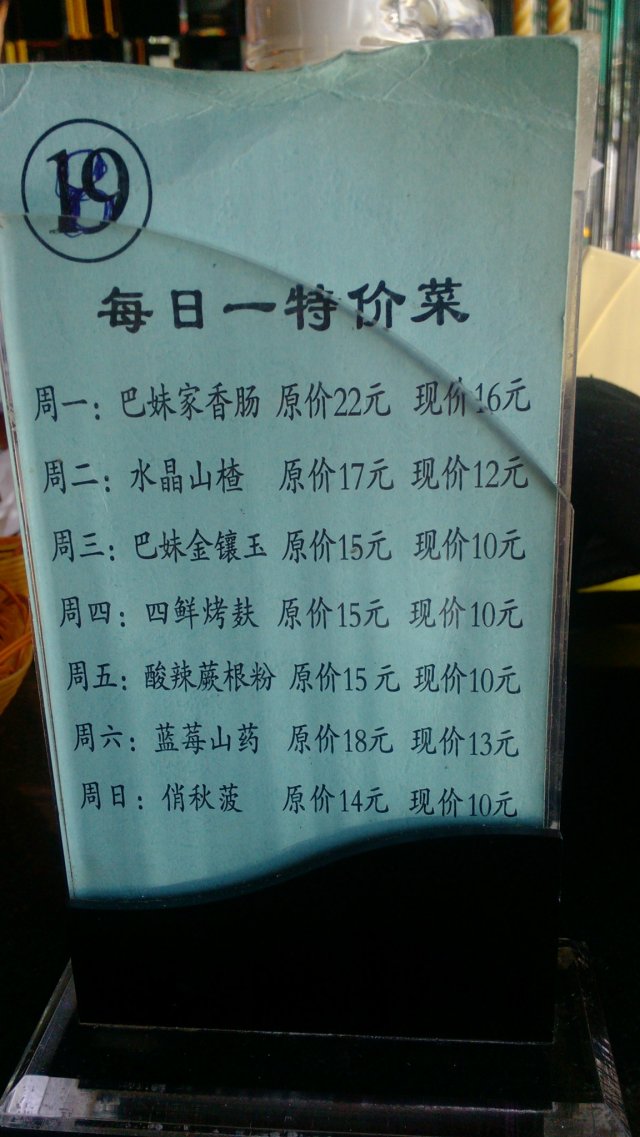 19
每日一特价菜
周一：巴妹家香肠 原价22元 现价16元
周二：水晶山楂 原价17元 现价12元
周三：巴妹金镶玉 原价15元 现价10元
周四：四鲜烤麸 原价15元 现价10元
周五：酸辣蕨根粉 原价15元 现价10元
周六：蓝莓山药 原价18元 现价13元
周日：俏秋菠 原价14元 现价10元